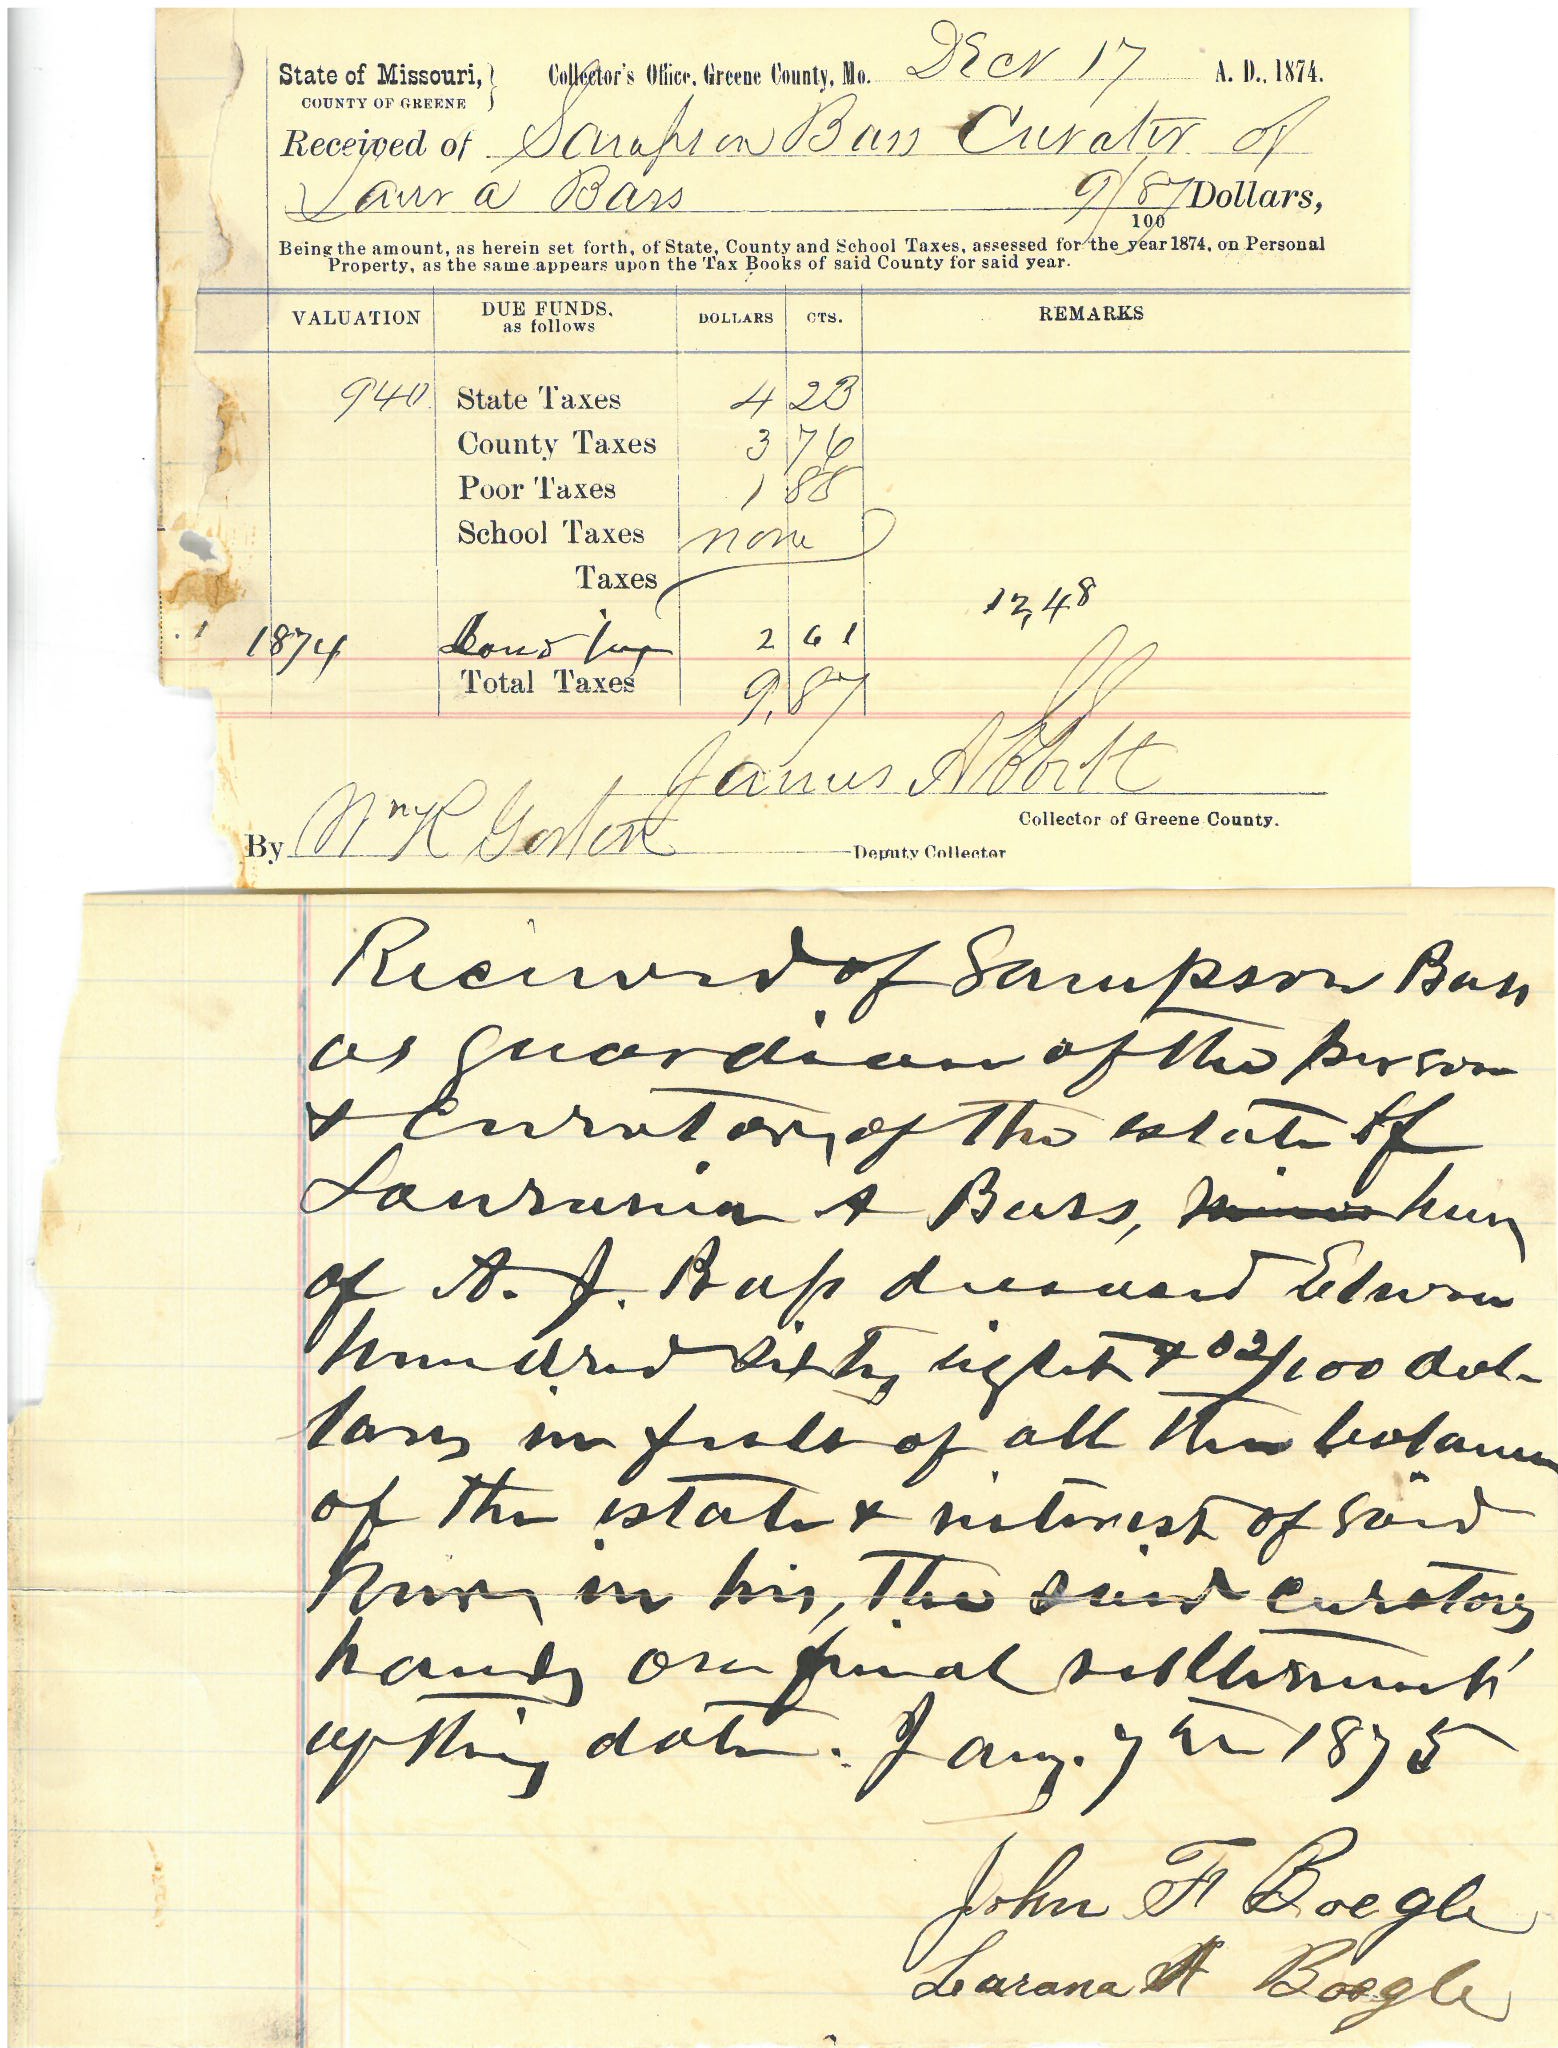 State of Missouri,
COUNTY OF GREENE
Collector's Office, Greene County, Mo. Decr 17 A. D., 1874.
Received of Sampson Bass Curator of
Laura Bass 9/87/100 Dollars,
Being the amount, as herein set forth, of State, County and School Taxes, assessed for the year 1874, on Personal
Property, as the same appears upon the Tax Books of said County for said year.
VALUATION DUE FUNDS, as follows DOLLARS CTS. REMARKS
940 State Taxes 4 23
County Taxes 3 76
Poor Taxes 1 88
School Taxes none
Taxes
12,48
1874 2 61
Total Taxes 9,87
James Abbott
Collector of Greene County.
By Wm R Gorton Deputy Collector
Received of Sampson Bass
as guardian of the person
& Curator, of the estate of
A Bass, minor heir
of A. J. Bass deceased Eleven
hundred sixty eight & 02/100 dol-
lars in full of all the balance
of the estate & interest of said
in his, the said curators
hands on final settlement
up this date. Jany. 7th 1875
John F Boegle
Larana A Boegle